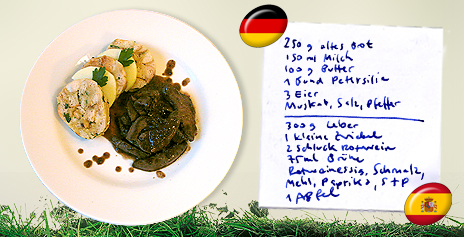 250 g altes Brot
150 ml Milch
100 g Butter
1 Bund Petersilie
3 Eier
Muskat, Salz, Pfeffer
300 g Leber
1 kleine Zwiebel
2 Schluck Rotwein
75 ml Brühe
Rotweinessig, Schmalz,
Mehl, Paprika, S+P
1 Apfel